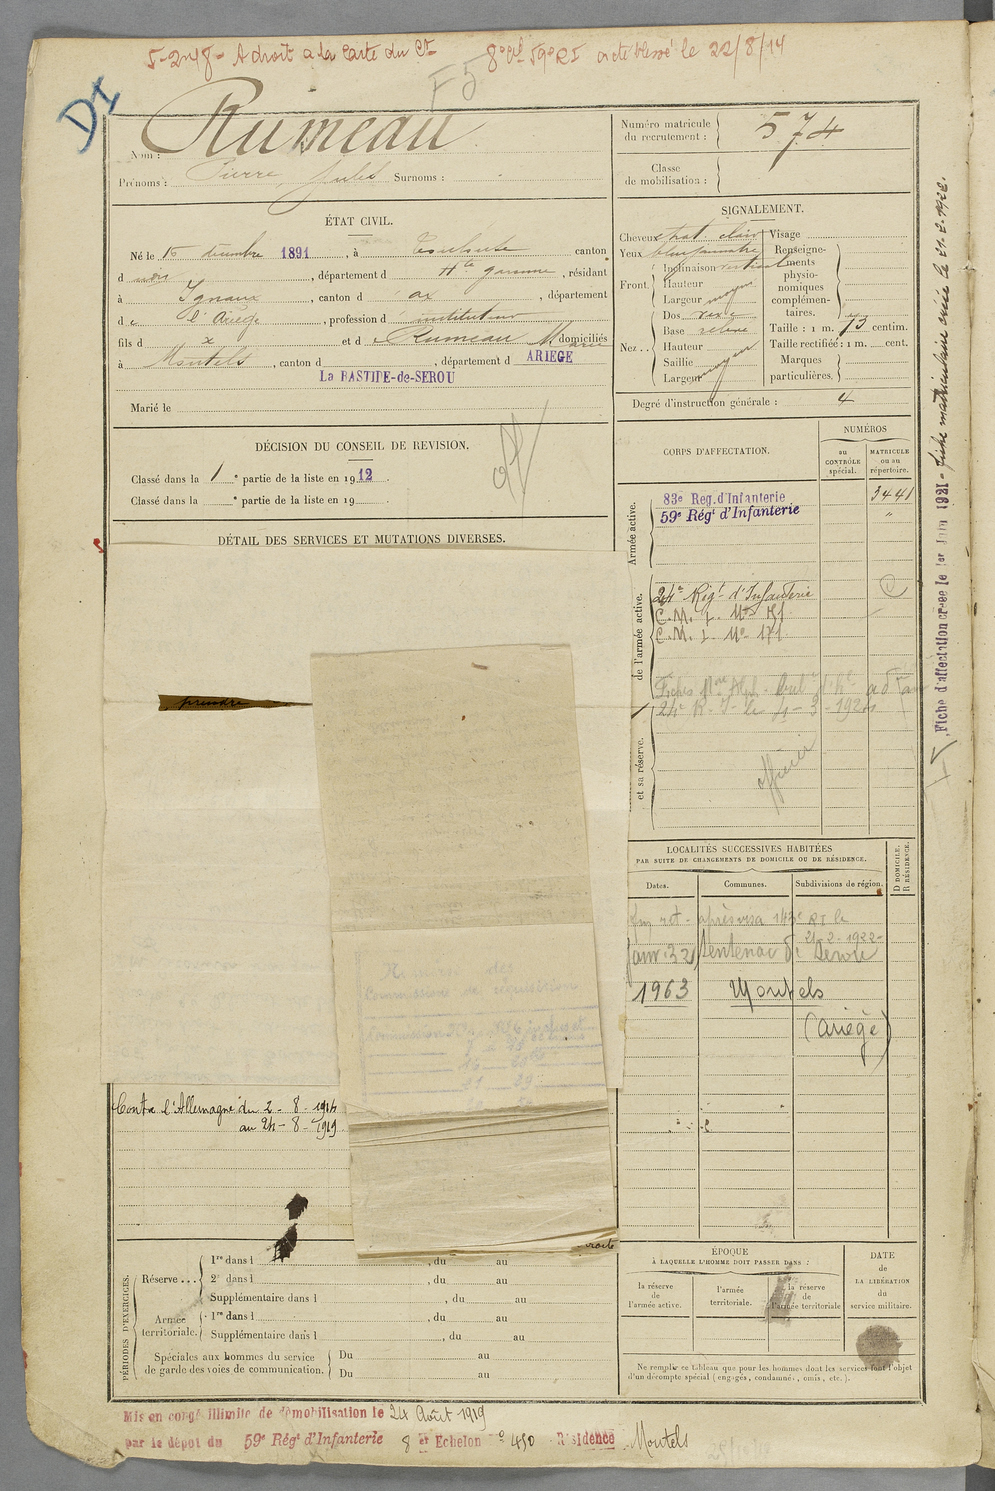 5-2-18- A droit a la Carte du Ct 8e Cie 59e RI a été blessé le 22/8/14
F5
DI
Nom : Rumeau
Prénoms : Pierre, Jules Surnoms :
Numéro matricule du recrutement : 574
Classe de mobilisation :
ÉTAT CIVIL.
Né le 15 décembre 1891, à canton
d , département d Hte garonne, résidant
à Ignaux, canton d ax, département
de l'Ariège, profession d instituteur
fils d x et de Rumeau Marie domiciliés
à Montels, canton d , département d ARIEGE
La BASTIDE-de-SEROU
Marié le
SIGNALEMENT.
Cheveux chat. clair Visage
Yeux
Front. Inclinaison verticale
Hauteur
Largeur moyen
Nez... Dos
Base relevé
Hauteur
Saillie
Largeur moyen
Renseigne-
ments
physio-
nomiques
complémen-
taires.
Taille : 1 m. 73 centim.
Taille rectifiée : 1 m. cent.
Marques
particulières.
Degré d'instruction générale : 4
DÉCISION DU CONSEIL DE REVISION.
Classé dans la 1e partie de la liste en 1912.
Classé dans la e partie de la liste en 19 .
off
DÉTAIL DES SERVICES ET MUTATIONS DIVERSES.
CORPS D'AFFECTATION.
NUMÉROS
au CONTRÔLE spécial.
MATRICULE ou au répertoire.
Armée active.
83e Reg. d'Infanterie 3441
59e Régt d'Infanterie "
de l'armée active.
24e Régt d'Infanterie
C.M. I. No 171
C.M. I. No 171
24e R. I. le
et sa réserve.
officier
prendre
Fiche d'affectation créée le 1er Juin 1921 - fiche matriculaire créée le 21.2.1922.
LOCALITÉS SUCCESSIVES HABITÉES
PAR SUITE DE CHANGEMENTS DE DOMICILE OU DE RÉSIDENCE.
Dates. Communes. Subdivisions de région.
D DOMICILE.
R RÉSIDENCE.
après visa 143e RI le
21-2-1922-
Janv. 32 Sentenac de Sérou
1963 Montels
(Ariège)
des
Commissions de réquisition
Contre l'Allemagne du 2-8-1914
au 24-8-1919
droite
PÉRIODES D'EXERCICES.
Réserve... 1re dans l , du au
2e dans l , du au
Supplémentaire dans l , du au
Armée territoriale. 1re dans l , du au
Supplémentaire dans l , du au
Spéciales aux hommes du service
de garde des voies de communication.
Du au
Du au
ÉPOQUE
À LAQUELLE L'HOMME DOIT PASSER DANS :
la réserve de l'armée active.
l'armée territoriale.
la réserve de l'armée territoriale
DATE de LA LIBÉRATION du service militaire.
Ne remplir ce tableau que pour les hommes dont les services font l'objet
d'un décompte spécial (engagés, condamnés, omis, etc.).
Mis en congé illimité de démobilisation le 24 Août 1919
par le dépôt du 59e Régt d'Infanterie 8 e Echelon no 450 Résidence Montels